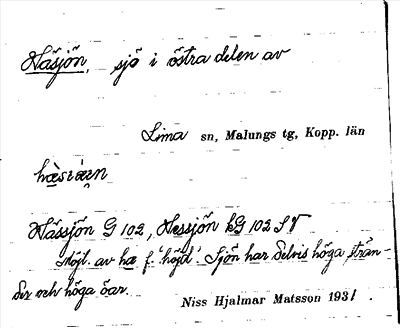 Häsjön, sjö i östra delen av
Lima sn, Malungs tg, Kopp. län
Hässjön G 102, Hessjön kG 102 SV
Möjl. av hæ f. 'höjd'. Sjön har delvis höga strän-
der och höga öar.
Niss Hjalmar Matsson 1931.